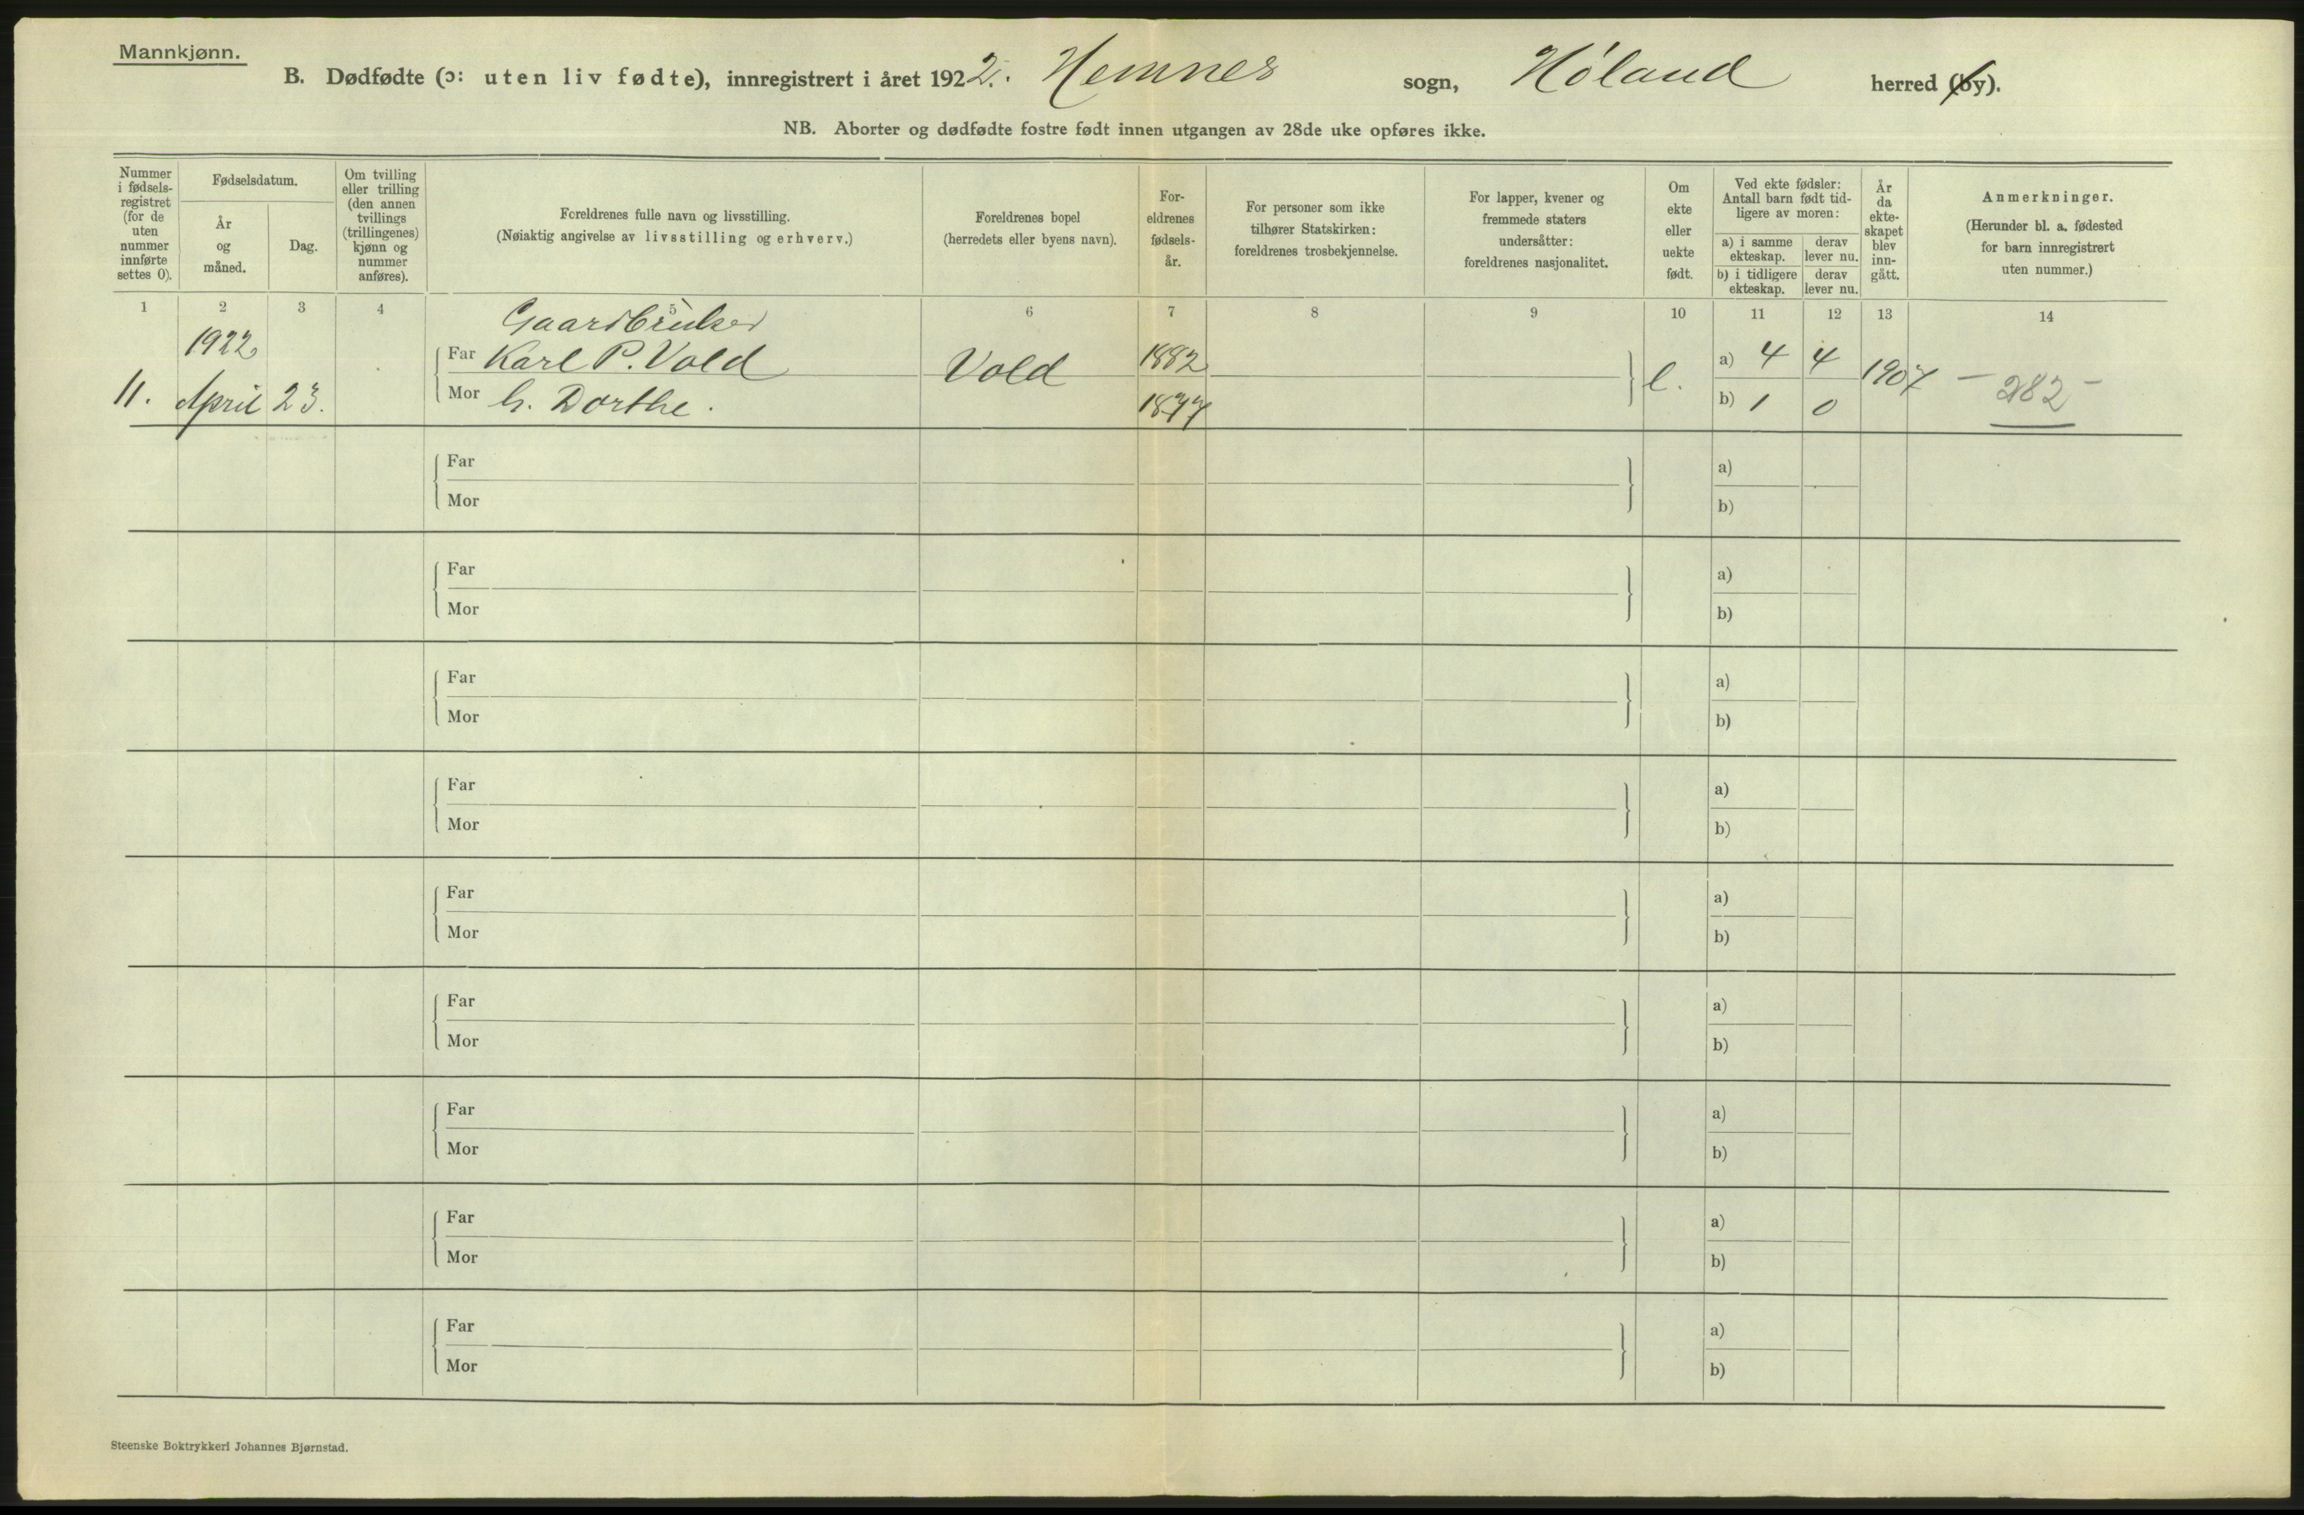 Mannkjønn.
B. Dødfødte (ɔ: uten liv fødte), innregistrert i året 1922. Hemnes sogn, Høland herred (by).
NB. Aborter og dødfødte fostre født innen utgangen av 28de uke opføres ikke.
Nummer i fødsels-registret (for de uten nummer innførte settes 0).
Fødselsdatum.
År og måned.
Dag.
Om tvilling eller trilling (den annen tvillings (trillingenes) kjønn og nummer anføres).
Foreldrenes fulle navn og livsstilling.
(Nøiaktig angivelse av livsstilling og erhverv.)
Foreldrenes bopel
(herredets eller byens navn).
For-eldrenes fødsels-år.
For personer som ikke tilhører Statskirken: foreldrenes trosbekjennelse.
For lapper, kvener og fremmede staters undersåtter: foreldrenes nasjonalitet.
Om ekte eller uekte født.
Ved ekte fødsler: Antall barn født tid-ligere av moren:
a) i samme ekteskap. derav lever nu.
b) i tidligere ekteskap. derav lever nu.
År da ekte-skapet blev inn-gått.
Anmerkninger.
(Herunder bl. a. fødested for barn innregistrert uten nummer.)
1 2 3 4 5 6 7 8 9 10 11 12 13 14
Gaardbruker
1922 Far Karl P. Vold Vold 1882 a) 4 4
11. April 23. Mor h. Dorthe. 1877 e. b) 1 0 1907 - 282 -
Far a)
Mor b)
Far a)
Mor b)
Far a)
Mor b)
Far a)
Mor b)
Far a)
Mor b)
Far a)
Mor b)
Far a)
Mor b)
Far a)
Mor b)
Far a)
Mor b)
Steenske Boktrykkeri Johannes Bjørnstad.